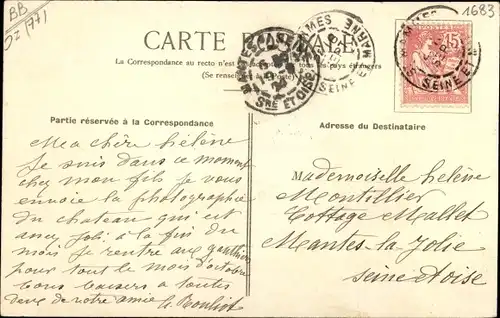 BB
DZ (77)
1683
CARTE POSTALE
La Correspondance au recto n'est pas tous les pays étrangers
(Se renseigner à la Poste)
SNE ET OISE
SEINE ET MARNE
15
Partie réservée à la Correspondance
Adresse du Destinataire
Ma chère hélène
Je suis dans ce moment
chez mon fils je vous
envoie la photographie
du chateau qui est
assez joli à la fin du
mois je rentre aux
pour tout le mois d'octobre
bons baisers a toutes
deux de votre amie
Mademoiselle helène
Montillier
Cottage Mallet
Mantes-la-Jolie
seine et oise